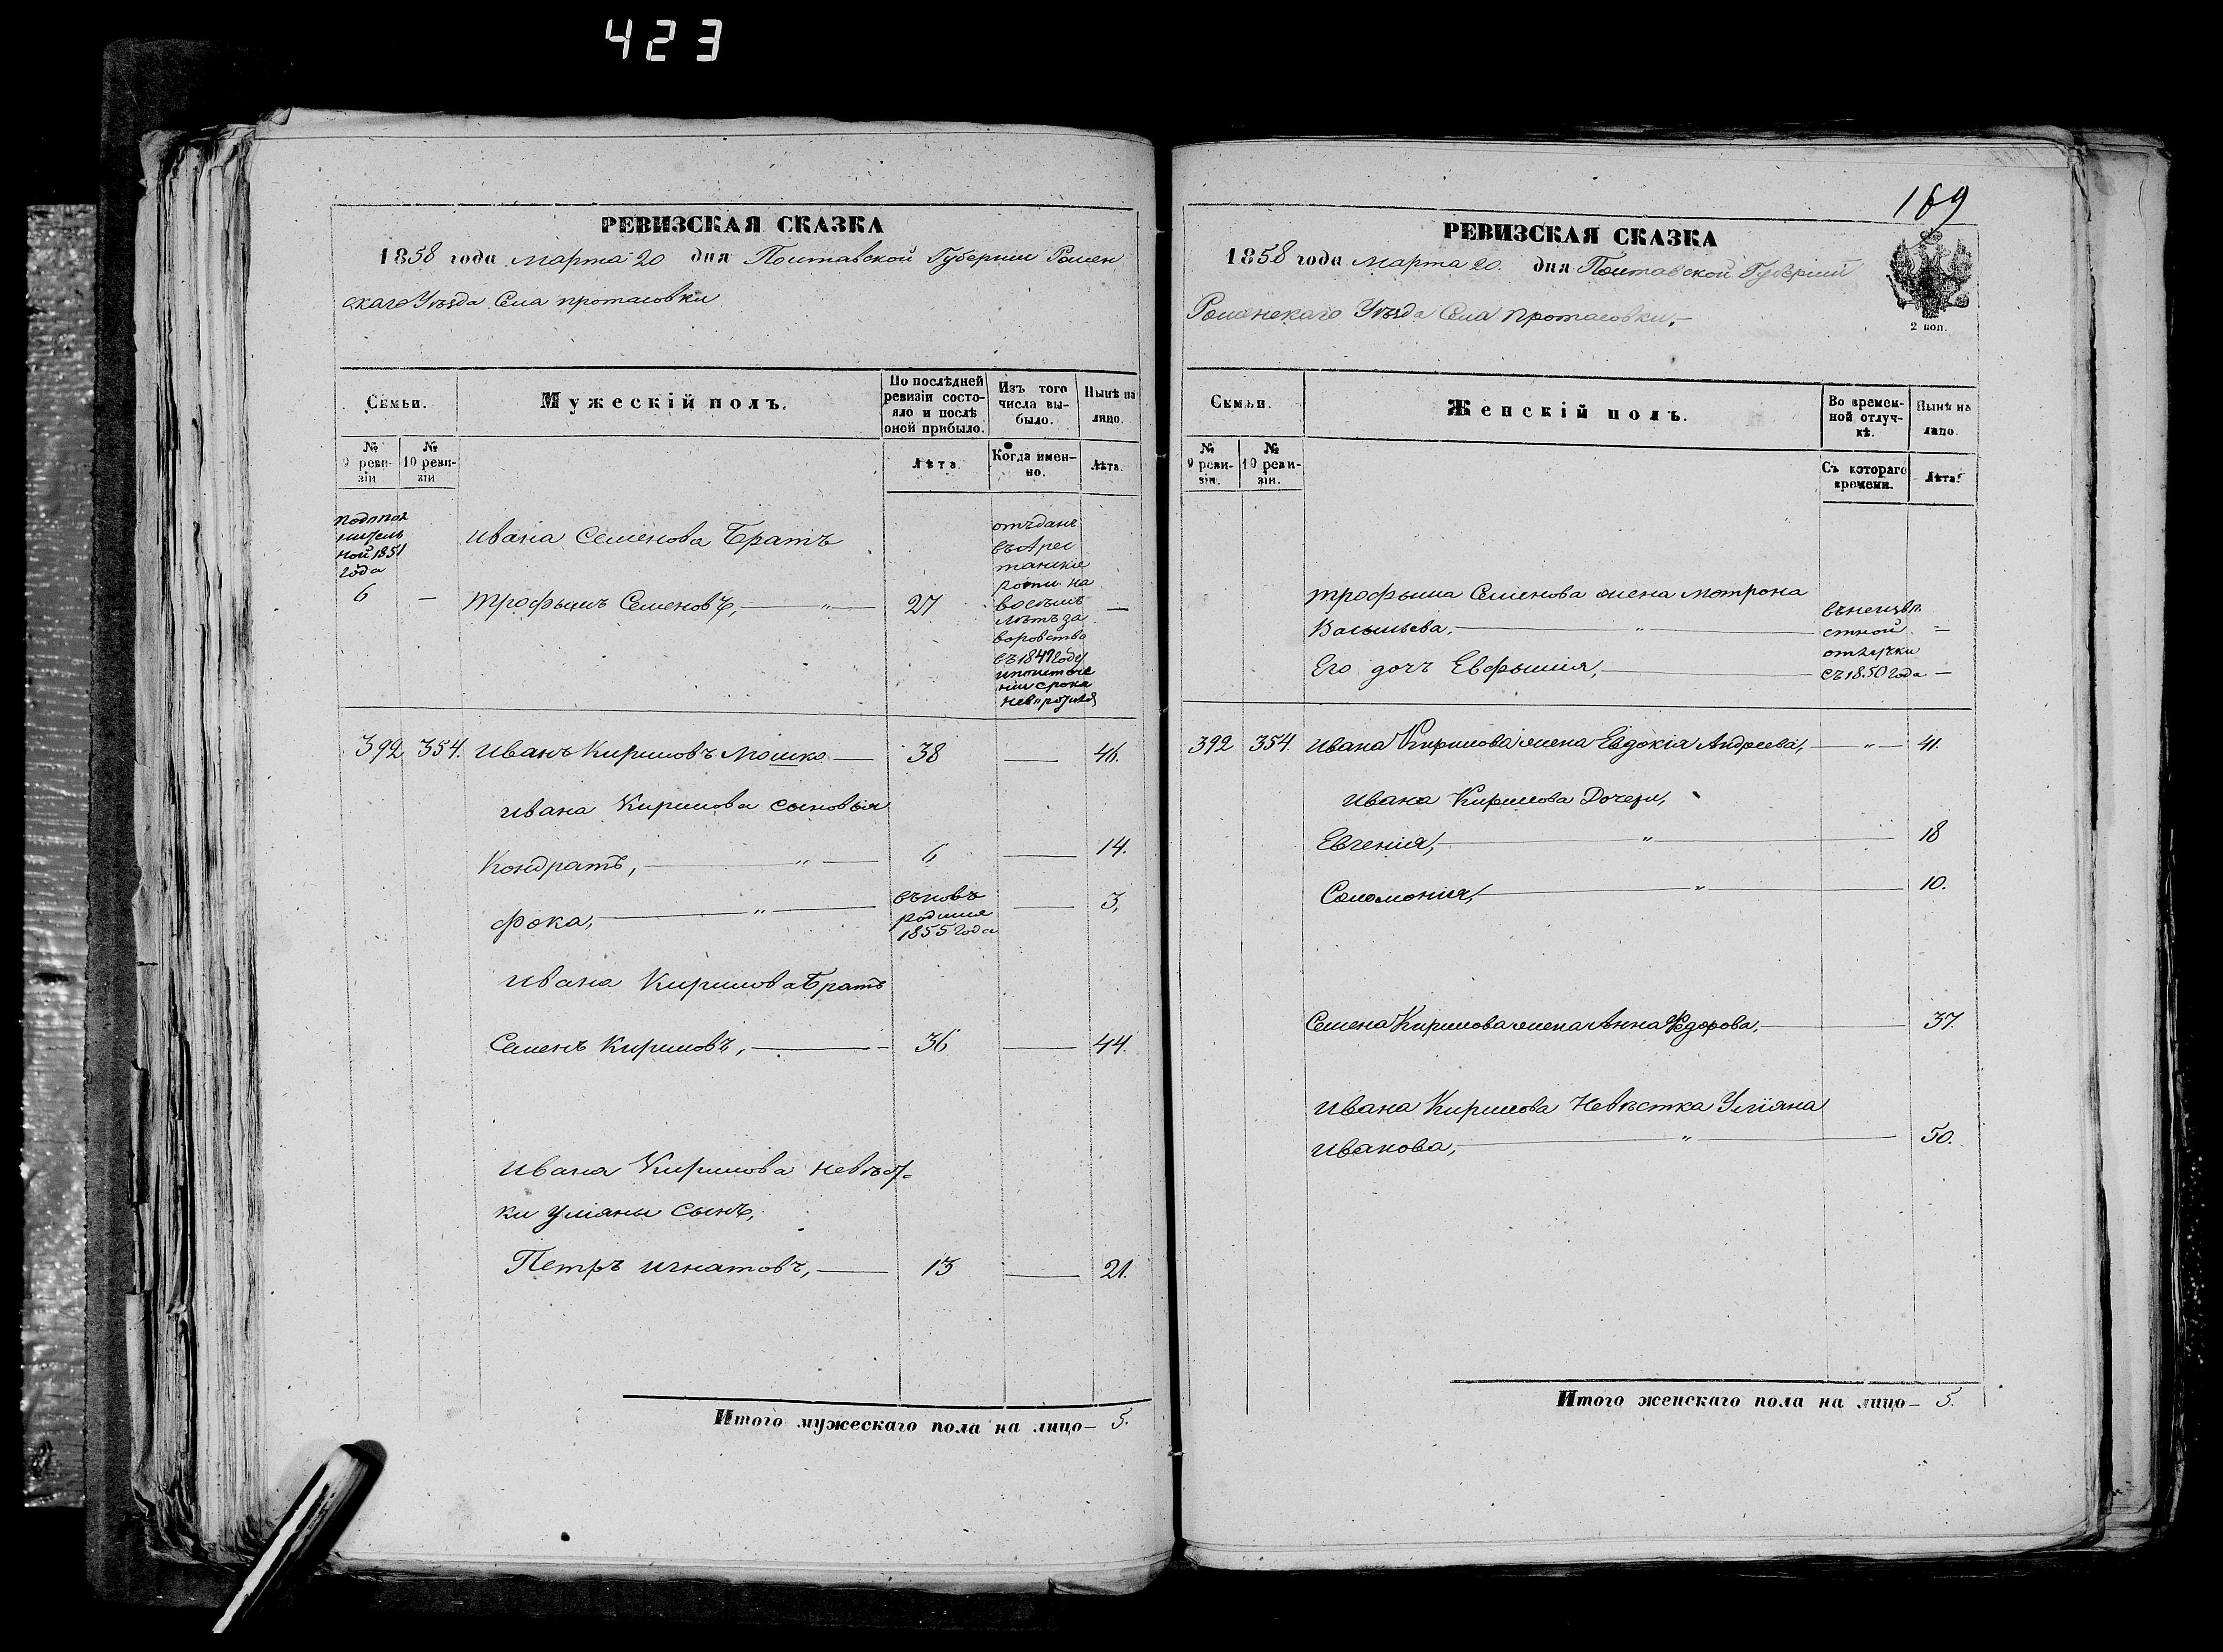 423
РЕВИЗСКАЯ СКАЗКА
1858 года марта 20 дня Полтавской Губернии Ромен
скаго Уѣзда Села протасовки
Семьи.
Мужескій полъ.
По послѣдней ревизіи состояло и послѣ оной прибыло.
Изъ того числа выбыло.
Нынѣ на лицо.
№ 9 ревизіи
№ 10 ревизіи
Лѣта
Когда именно.
Лѣта.
подопол
нитель
ной 1851
года
6 —
ивана Семенова Братъ
трофымъ Семеновъ, — „ — 27 —
отъданъ
въ Арес
танскіе
роты на
восемъ
лѣтъ за
воровство
въ 1849 году
ипоистече
ніи срока
392 354. иванъ Кириловъ Мошко — 38 — 46.
ивана Кирилова сыновья
Кондратъ, — „ — 6 — 14.
фока, — „ — вновь — 3,
родился
1855 года
ивана Кирилова Братъ
Семенъ Кириловъ, — 36 — 44.
ивана Кирилова невѣст-
ки уліяны сынъ,
Петръ игнатовъ, — 13 — 21.
Итого мужескаго пола на лицо— 5.
169
РЕВИЗСКАЯ СКАЗКА
1858 года марта 20. дня Полтавской Губерніи
Роменскаго Уѣзда Села протасовки,—
2 коп.
Семьи.
Женскій полъ.
Во временной отлучкѣ.
Нынѣ на лицо.
№ 9 ревизіи.
№ 10 ревизіи.
Съ котораго времени.
Лѣта.
трофыма Семенова жена мотрона
Васыльева, — „ —
въ неизвѣ
стной —
Его дочъ Евфымія, —
отлучки
съ 1850 года —
392 354. ивана Кирилова жена Евдокія Андреева, — „ — 41.
ивана Кирилова Дочери,
Евгенія, — „ — 18
Соломонія, — „ — 10.
Семена Кирилова жена Анна Федорова, — 37.
ивана Кирилова Невѣстка Уліяна
иванова, — „ — 50.
Итого женскаго пола на лицо— 5.